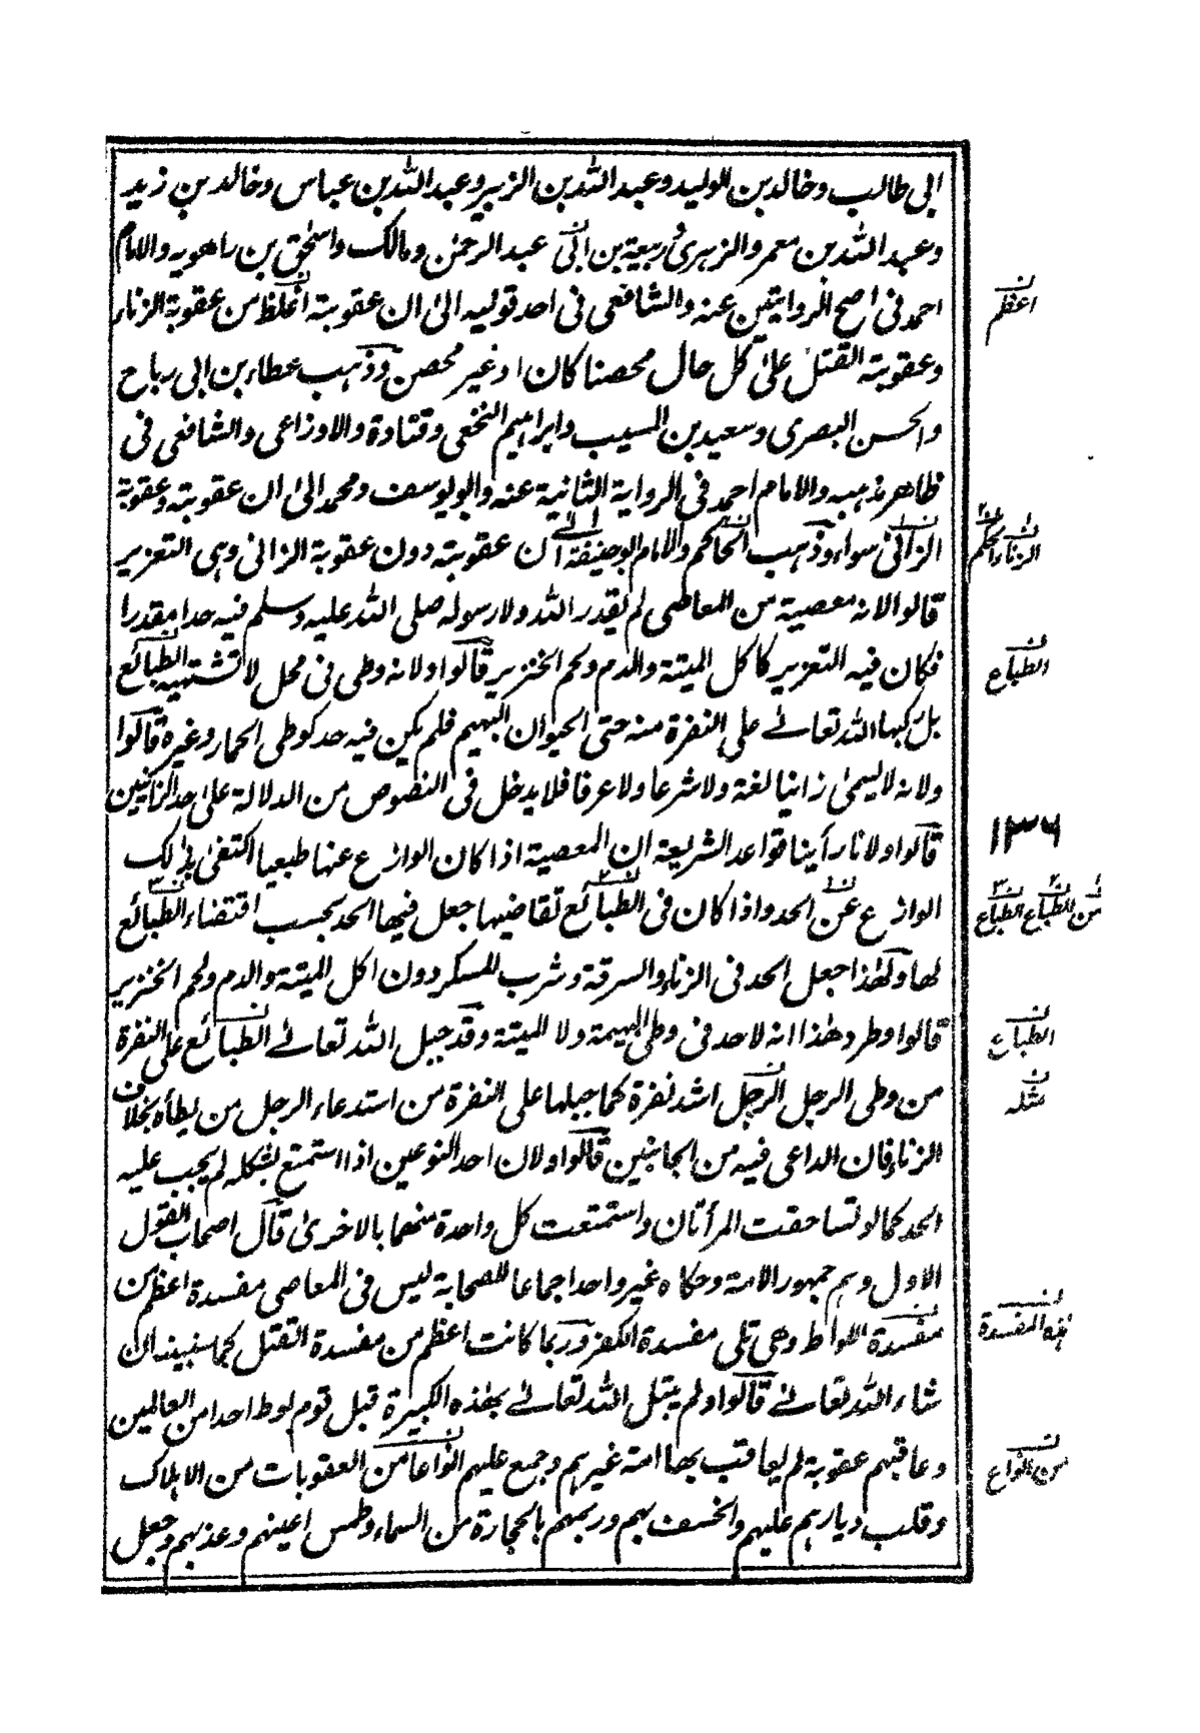 ابى طالب وخالد بن الوليد وعبد الله بن الزبير وعبد الله بن عباس وخالد بن زيد
وعبد الله بن معمر والزهرى وربيعة بن ابى عبد الرحمٰن ومالك واسحٰق بن راهويه والامام
احمد فى اصح الروايتين عنه والشافعى فى احد قوليه الىٰ ان عقوبته اغلظ من عقوبة الزناء
وعقوبته القتل علىٰ كل حال محصنا كان او غير محصن وذهب عطاء بن ابى رباح
والحسن البصرى وسعيد بن المسيب وابراهيم النخعى وقتادة والاوزاعى والشافعى فى
ظاهر مذهبه والامام احمد فى الرواية الثانية عنه وابو يوسف ومحمد الىٰ ان عقوبته وعقوبة
الزانى سواء وذهب الحاكم والامام ابو حنيفة الى ان عقوبته دون عقوبة الزانى وهى التعزير
قالوا لانه معصية من المعاصى لم يقدر الله ولا رسوله صلى الله عليه وسلم فيه حدا مقدرا
فكان فيه التعزير كاكل الميتة والدم ولحم الخنزير قالوا ولانه وطى فى محل لا تشتهيه الطبائع
بل ركبها الله تعالى على النفرة منه حتى الحيوان البهيم فلم يكن فيه حد كوطى الحمار وغيره قالوا
ولانه لا يسمىٰ زانيا لغة ولا شرعا ولا عرفا فلا يدخل فى النصوص من الدلالة علىٰ حد الزانيين
قالوا ولانا رأينا قواعد الشريعة ان المعصية اذا كان الوازع عنها طبعيا اكتفى بذلك
الوازع عن الحد واذا كان فى الطبائع تقاضيها جعل فيها الحد بحسب اقتضاء الطبائع
لها ولهٰذا جعل الحد فى الزناء والسرقة وشرب المسكر دون اكل الميتة والدم ولحم الخنزير
قالوا وطرد هٰذا انه لا حد فى وطى البهيمة ولا الميتة وقد جبل الله تعالى الطبائع على النفرة
من وطى الرجل الرجل اشد نفرة كما جبلها على النفرة من استدعاء الرجل من يطأه بخلاف
الزناء فان الداعى فيه من الجانبين قالوا ولان احد النوعين اذا استمتع بشكله لم يجب عليه
الحد كما لو تساحقت المرأتان واستمتعت كل واحدة منهما بالاخرىٰ قال اصحاب القول
الاول وهم جمهور الامة وحكاه غير واحد اجماعا للصحابة ليس فى المعاصى مفسدة اعظم من
مفسدة اللواط وهى تلى مفسدة الكفر وربما كانت اعظم من مفسدة القتل كما سنبينه ان
شاء الله تعالى قالوا ولم يبتل الله تعالى بهٰذه الكبيرة قبل قوم لوط احدا من العالمين
وعاقبهم عقوبة لم يعاقب بها امة غيرهم وجمع عليهم انواعا من العقوبات من الاهلاك
وقلب ديارهم عليهم والخسف بهم ورجمهم بالحجارة من السماء وطمس اعينهم وعذبهم وجعل
اعظم
الزناء الحكم
الطباع
١٣٦
من الطباع الطباع
الطباع
مثله
هذه المفسدة
من انواع